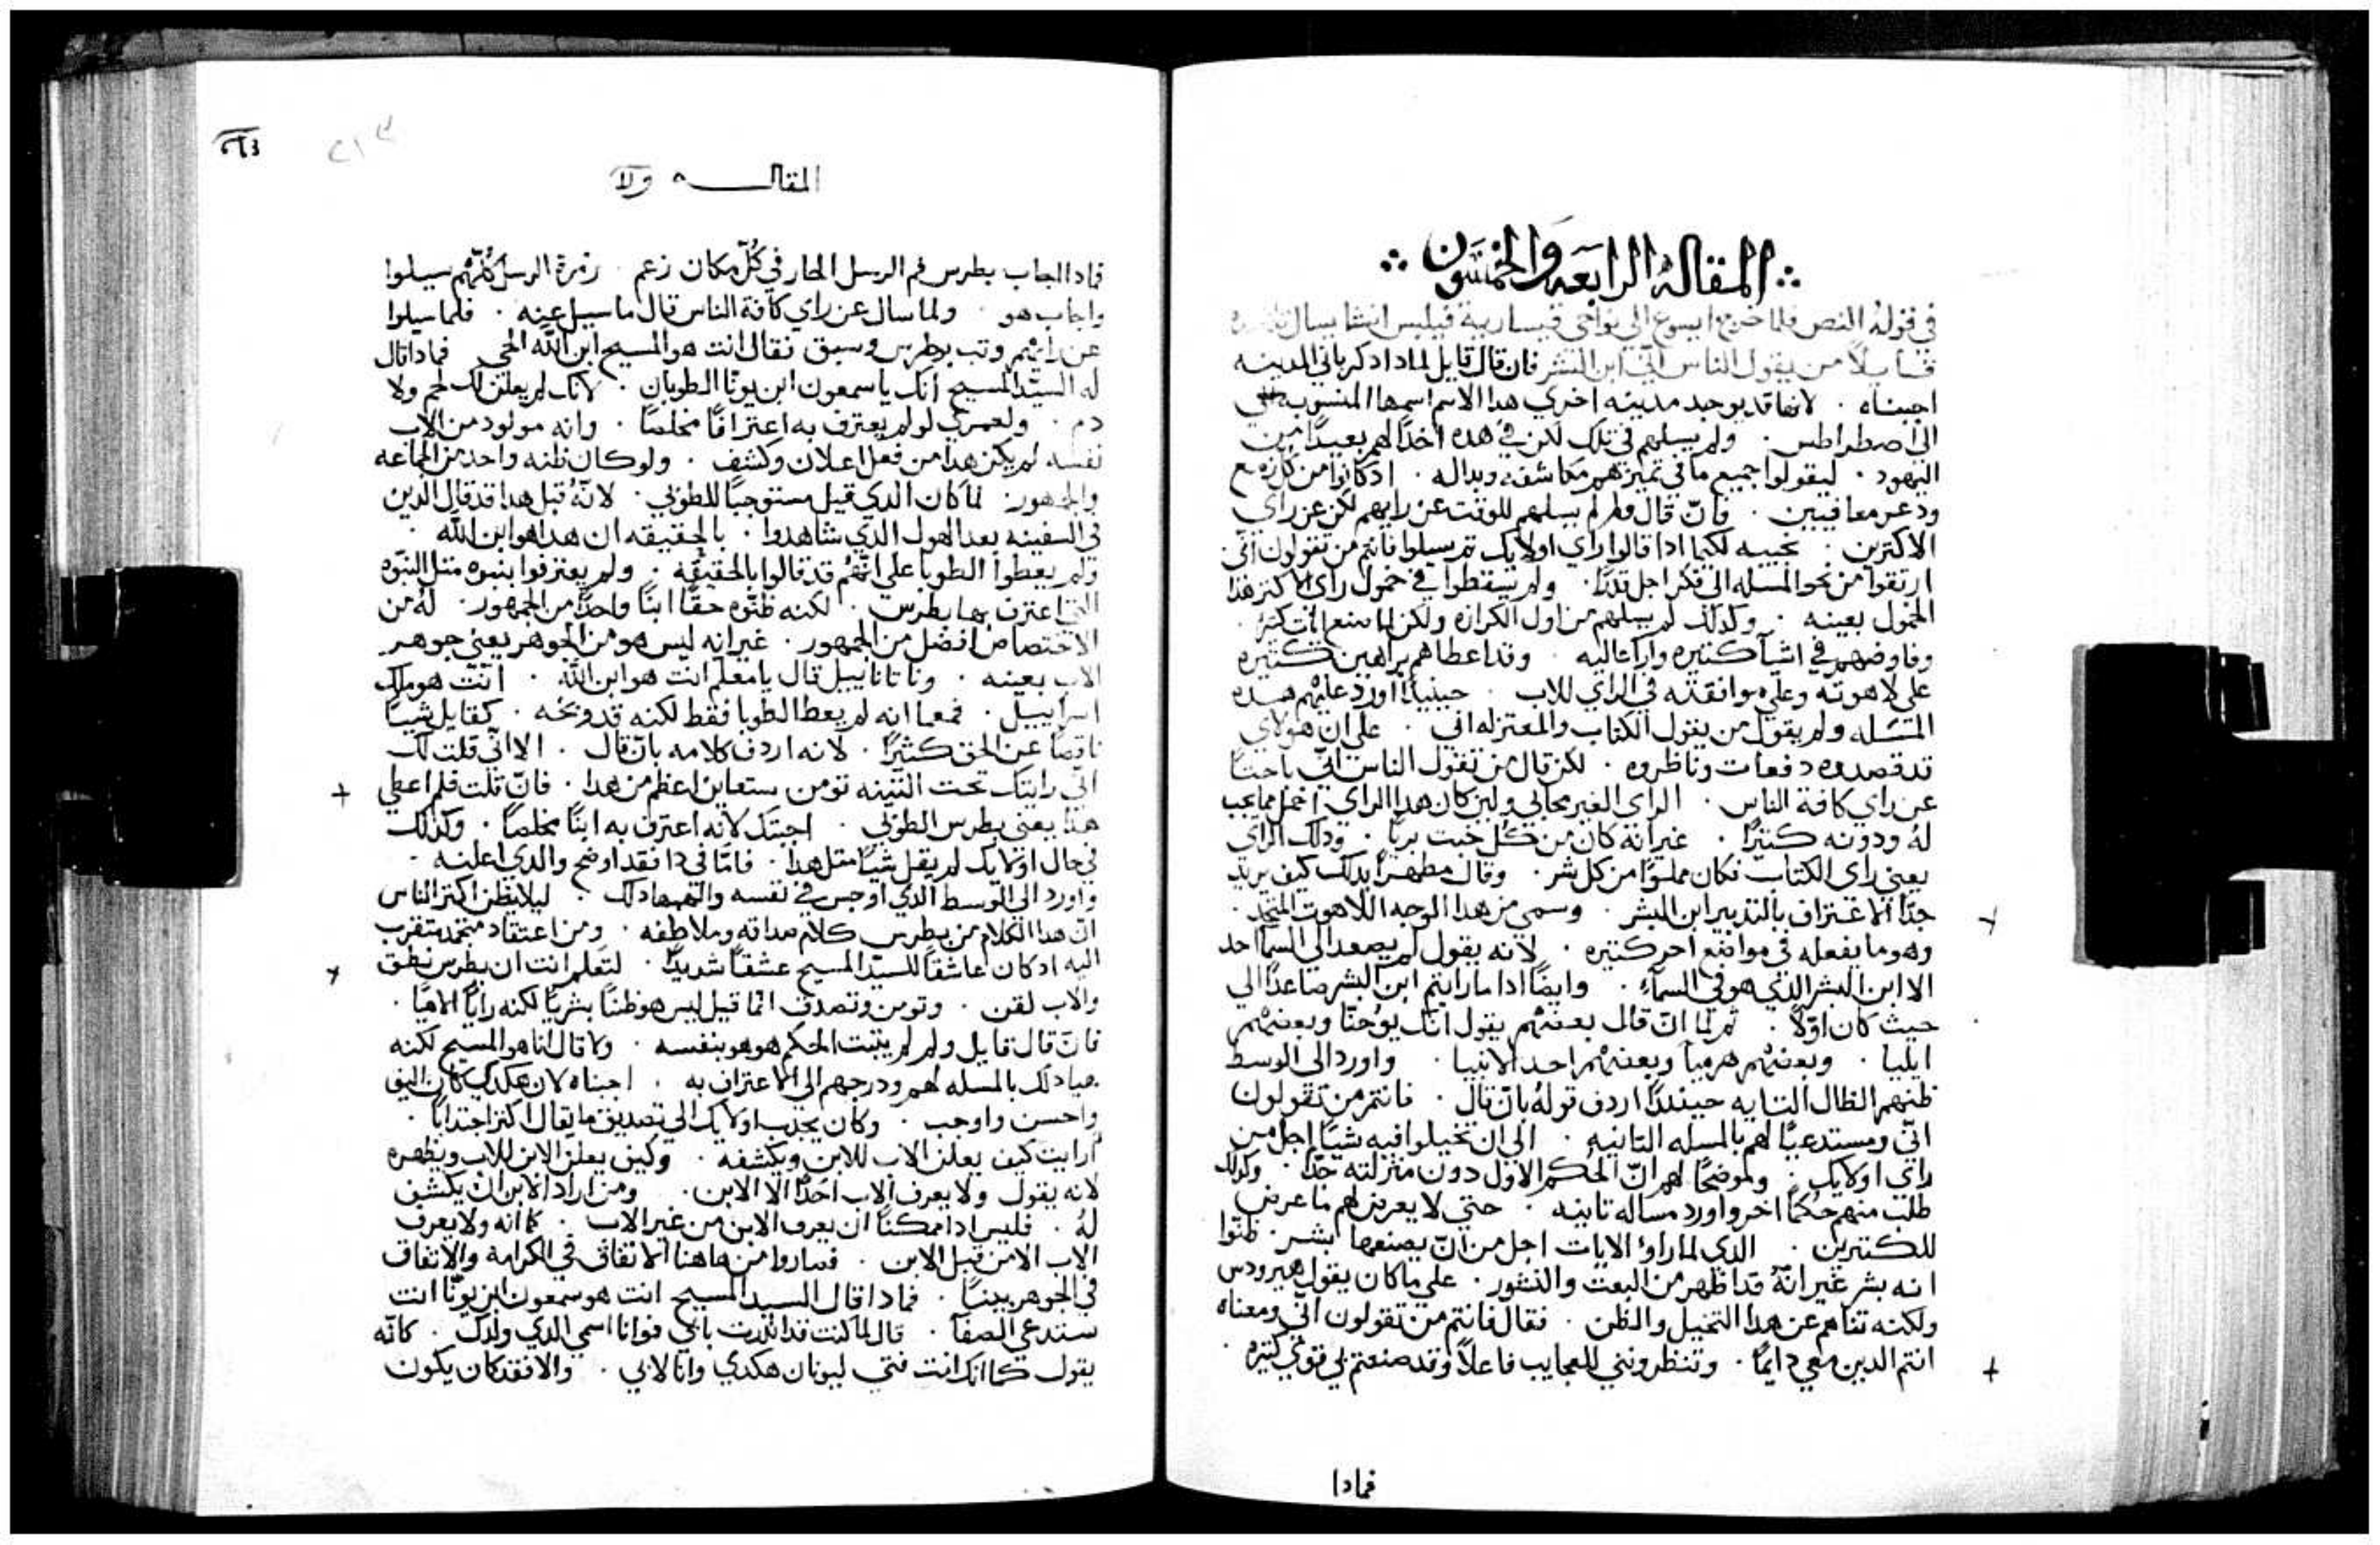 المقاله الرابعه والخمسون
في قوله النص فلما خرج ايسوع الي نواحي قيسارية فيلبس انشا يسال
قايلاً من يقول الناس اني ابن البشر فان قال قايل لمادا دكر باني المدينه
اجبناه . لانها قد يوجد مدينه اخري هدا الاسم اسمها المنسوبه
الي اصطراطس . ولم يسلهم في تلك لكن في هده اخدًا لهم بعيدًا من
اليهود . ليقولوا جميع ما في تميزهم مكاشفه وبداله . ادكانوا من
ودعر معافيين . فان قال ولم لم يسلهم للوقت عن رايهم لكن عن راي
الاكترين . نجيبه لكيما ادا قالوا راي اولايك تم سيلوا فانتم من تقولون اني
ارتقوا من نحو المسله الي فكر اجل قدرًا . ولم يسقطوا في خمول راي الاكتر هدا
الخمول بعينه . وكدلك لم يسلهم من اول الكرازه ولكن لما صنع ايات كتيره .
وفاوضهم في اشيا كتيره وارا عاليه . وقد اعطاهم براهين كتيره
علي لاهوته وعلي موافقته في الراي للاب . حينيدًا اورد عليهم هده
المسله ولم يقول من يقول الكتاب والمعتزله اني . علي ان هولاي
قد قصدوه دفعات وناظروه . لكن قال من تقول الناس اني باحتًا
عن راي كافة الناس . الراي الغير محابي ولين كان هدا الراي اخمل مما يجب
له ودونه كتيرًا . غير انه كان من كل خبت بريًا . ودلك الراي
يعني راي الكتاب فكان مملوًا من كل شر . وقال مظهرًا بدلك كيف يريد
جدًا الاعتراف بالتدبير ابن البشر . وسمي من هدا الوجه اللاهوت المتحد .
وهو ما يفعله في مواضع اخر كتيره . لانه يقول لم يصعد الي السما احد
الا ابن البشر الذي هو في السمآء . وايضًا ادا ما رايتم ابن البشر صاعدًا الي
حيث كان اولاً . تم لما ان قال بعضهم يقول انك يوحنا وبعضهم
ايليا . وبعضهم هرميا وبعضهم احد الانبيا . واورد الي الوسط
ظنهم الظال التايه حينئدًا اردف قوله بان قال . فانتم من تقولون
اني ومستدعيًا لهم بالمسله التانيه . الي ان تخيلوا فيه شيًا اجل من
راي اولايك . وموضحًا لهم ان الحكم الاول دون منزلته جدًا . وكدلك
طلب منهم حكمًا اخر واورد مساله تانيه . حتي لا يعرض لهم ما عرض
للكتيرين . الدي لما راوا الايات اجل من ان يصنعها بشر . ظنوا
انه بشر غير انه قد اظهر من البعث والنشور . علي ما كان يقول هيرودس
ولكنه تناهم عن هدا التخيل والظن . فقال فانتم من تقولون اني ومعناه
انتم الدين معي دايمًا . وتنظرونني للعجايب فاعلاً وقد صنعتم بي قوي كتيره .
فمادا
المقاله ولا
فمادا اجاب بطرس فم الرسل الحار في كل مكان زعم . زمرة الرسل كلهم سيلوا
واجاب هو . ولما سال عن راي كافة الناس قال ما سيل عنه . فلما سيلوا
عن رايهم وتب بطرس وسبق فقال انت هو المسيح ابن الله الحي فمادا قال
له السيد المسيح انك يا سمعون ابن يونا الطوبان . لانك لم يعلن لك لحم ولا
دم . ولعمري لو لم يعترف به اعترافًا مخلصًا . وانه مولود من الاب
نفسه لم يكن هدا من فعل اعلان وكشف . ولو كان ظنه واحد من الجماعه
والجمهور . لما كان الدي قيل مستوجبًا للطوبي . لانه قبل هدا قد قال الدين
في السفينه بعد الهول الدي شاهدوا . بالحقيقه ان هدا هو ابن الله .
ولم يعطوا الطوبا علي انهم قد قالوا بالحقيقه . ولم يعترفوا بنبوه متل النبوه
التي اعترف بها بطرس . لكنه ظنوه حقًا ابنًا واحدًا من الجمهور . له من
الاختصاص افضل من الجمهور . غير انه ليس هو من الجوهر يعني جوهر
الاب بعينه . وناتاناييل قال يا معلم انت هو ابن الله . انت هو ملك
اسراييل . فمعما انه لم يعط الطوبا فقط لكنه قد وبخه . كقايل شيًا
ناقصًا عن الحق كثيرًا . لانه اردف كلامه بان قال . الا اني قلت لك
اني رايتك تحت التينه تومن ستعاين اعظم من هدا . فان قلت فلم اعطي
هدا يعني بطرس الطوبي . اجبتك لانه اعترف به ابنًا مخلصًا . وكدلك
في حال اولايك لم يقل شيًا متل هدا . فاما في دا فقد اوضح والدي اعلنه .
واورد الي الوسط الدي اوجس في نفسه والهمها دلك . ليلا يظن اكتر الناس
ان هدا الكلام من بطرس كلام صداقه وملاطفه . ومن اعتقاد متخمد متقرب
اليه ادكان عاشقًا للسيد المسيح عشقًا شديدًا . لتعلم انت ان بطرس نطق
والاب لقن . وتومن وتصدق انما قيل ليس هو ظنًا بشريًا لكنه رايًا الاهيًا .
فان قال قايل ولم لم يتبت الحكم هو هو بنفسه . ولا قال انا هو المسيح لكنه
هيا دلك بالمسله لهم ودرجهم الي الاعتراف به . اجبناه لان هكدي كان اليق
واحسن واوجب . وكان يجدب اولايك الي تصديق ما يقال اكتر اجتدابًا .
ارايت كيف يعلن الاب للابن ويكشفه . وكيف يعلن الابن للاب ويظهره
لانه يقول ولا يعرف الاب احدًا الا الابن . ومن اراد الابن ان يكشف
له . فليس ادا ممكنًا ان يعرف الابن من غير الاب . كما انه ولا يعرف
الاب الا من قبل الابن . فصاروا من هاهنا الاتفاق في الكرامة والاتفاق
في الجوهر بينًا . فمادا قال السيد المسيح انت هو سمعون ابن يونا انت
ستدعي الصفا . قال لما كنت قد اندرت بابي فوانا اسمي الدي ولدك . كانه
يقول كما انك انت فتي ليونان هكدي وانا لابي . والا فقد كان يكون